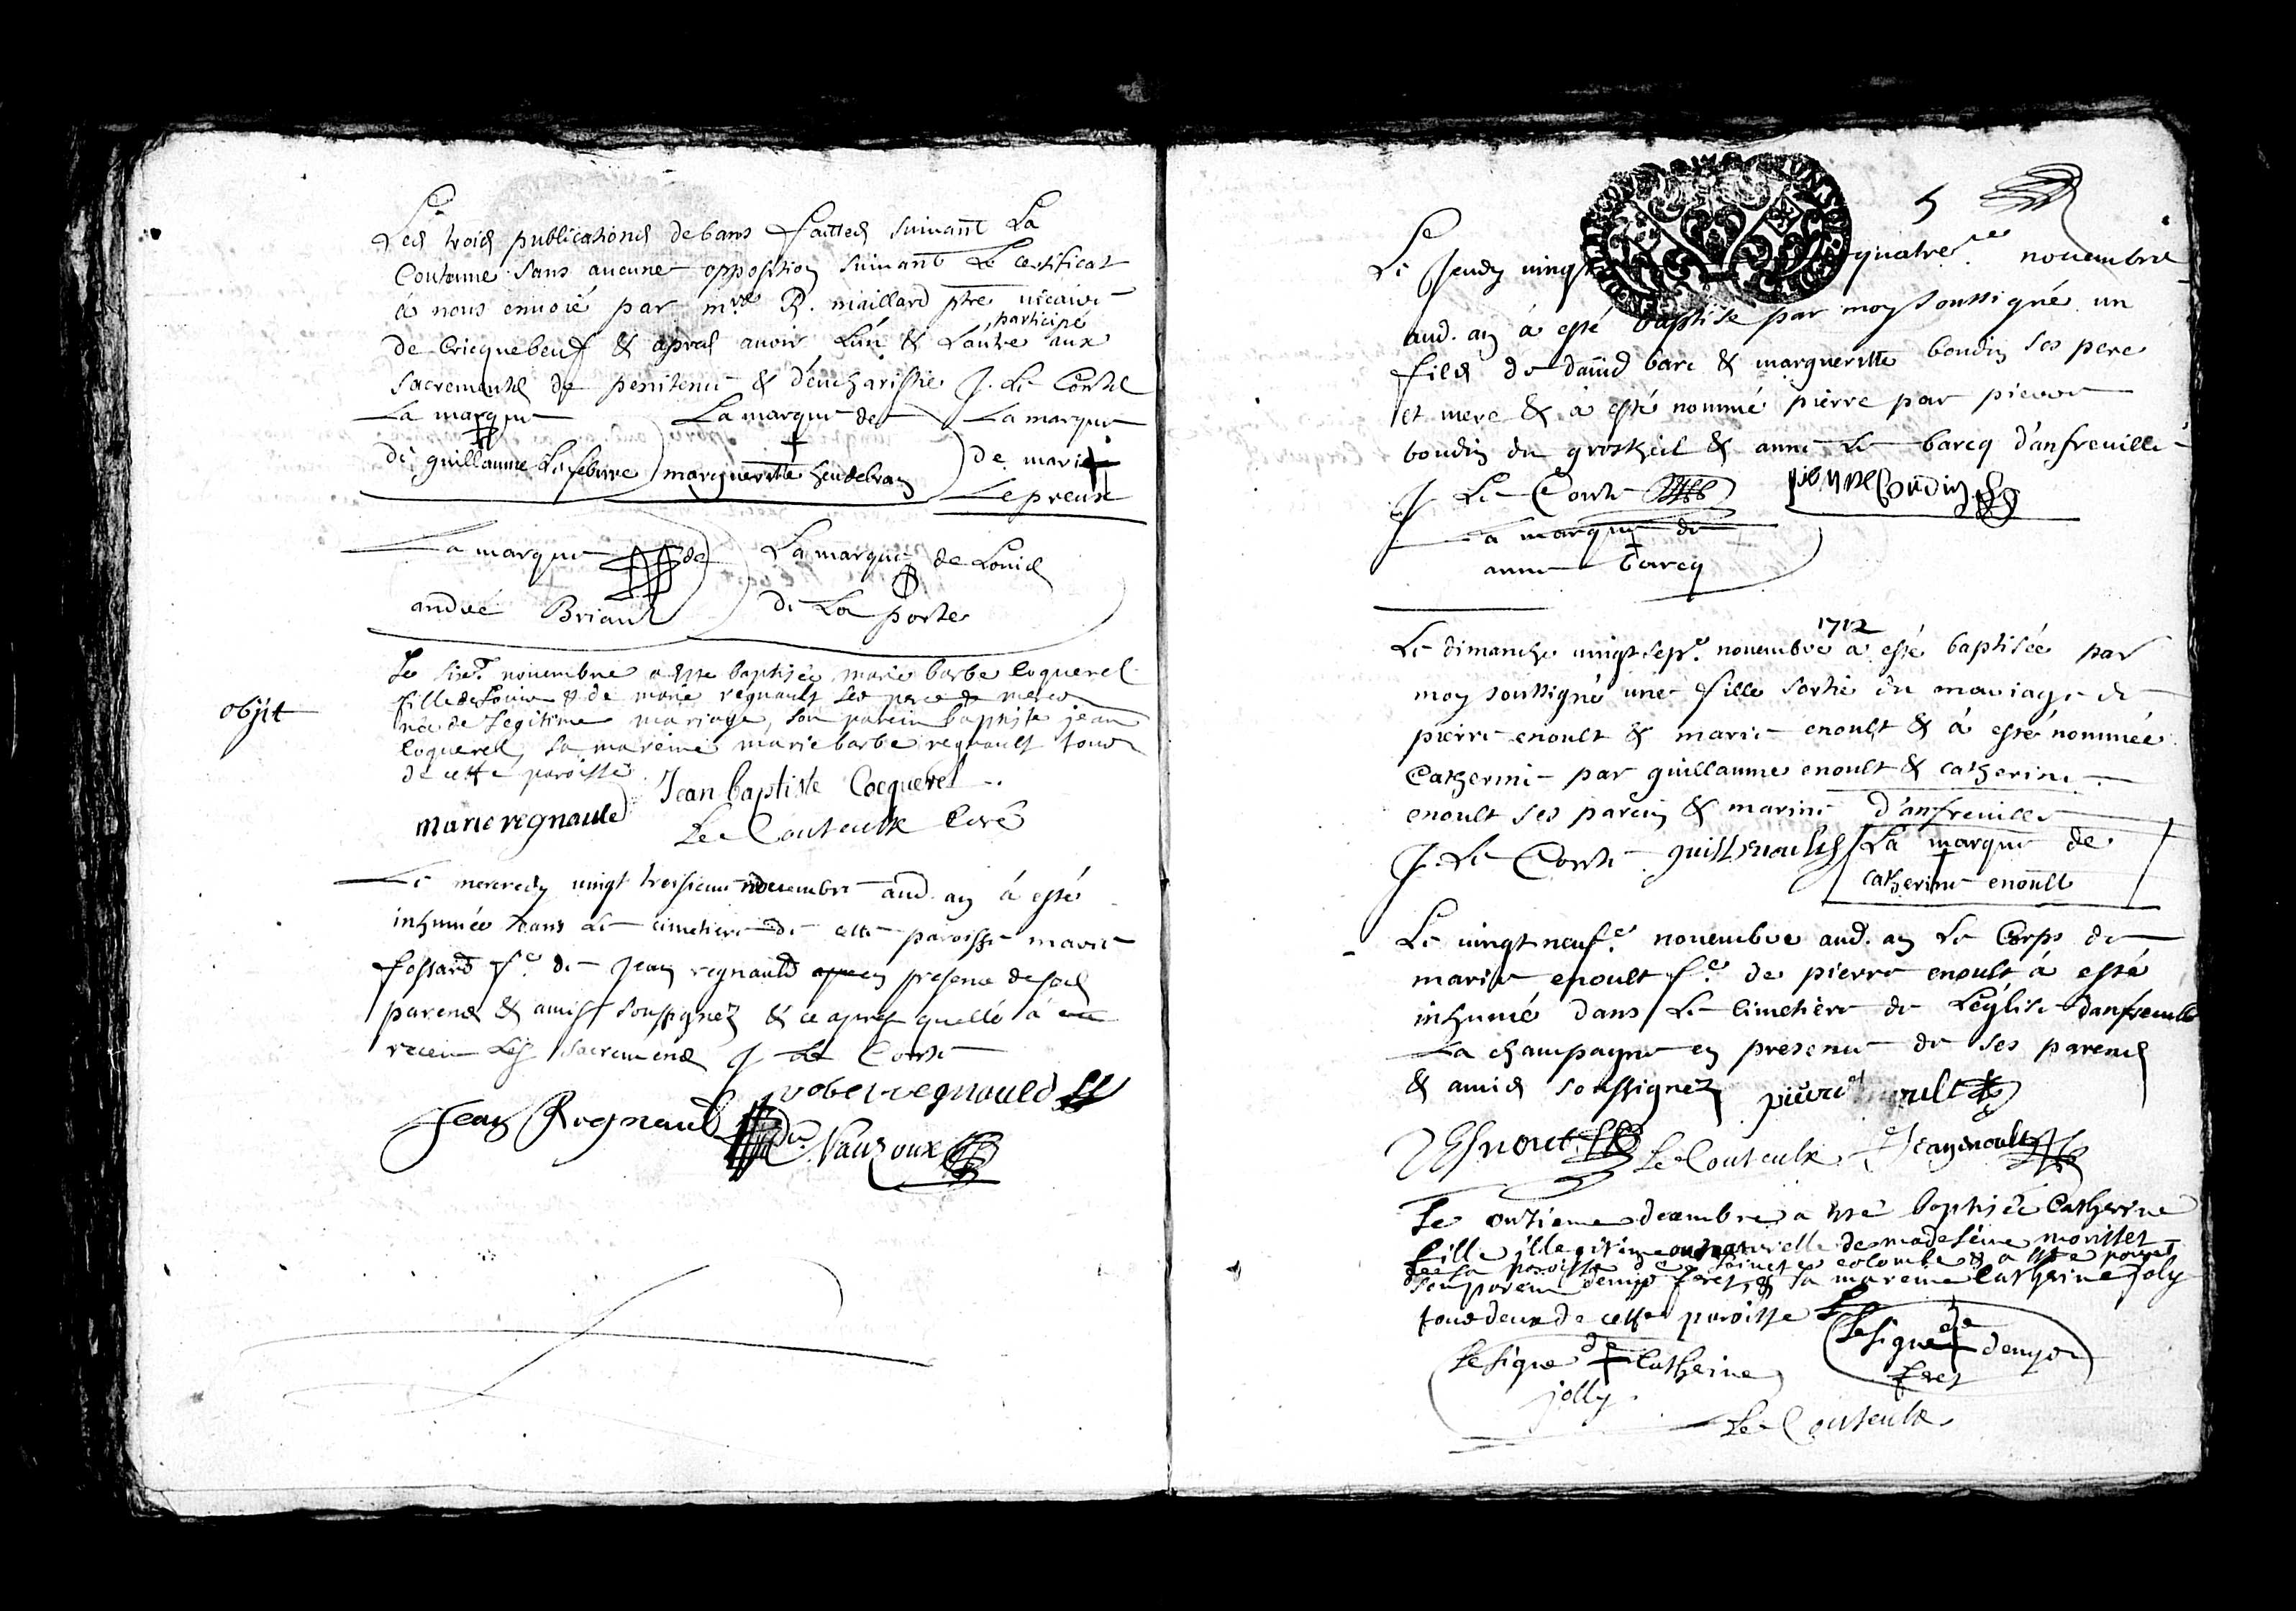 Les trois publications de bans faittes suivant La
Coutume sans aucune opposition suivant Le certificat
à nous envoié par mre R. maillard ptre vicaire
de Cricquebeuf & apres avoir L'un & L'autre participé aux
sacrements de penitence & d'eucharistie J. Le Conte
La marque La marque de La marque
de guillaume Lefebvre margueritte heudebran de marie
Le preux
La marque de La marque de Louis
andré Briant de La porte
objit
Le sixe novembre a esté baptisée marie barbe coquerel
fille de Louis & de marie regnault ses pere & mere
née de Legitime mariage, son parein baptiste jean
coquerel, sa mareine marie barbe regnault tous
de cette paroisse
Jean baptiste Cocquerel
marie regnauld
Le Couteulx Curé
Le mercredy vingt troisieme novembre aud. an à esté
inhumée dans Le cimetiere de cette paroisse marie
fossard fe de Jean regnauld en presence de ses
parens & amis soussignez & ce apres quelle à
receu Les sacremens J Le Conte
robert regnauld
Jean Regnauld
Vauzoux
5
Le Jeudy vingt quatre novembre
aud. an à esté baptise par moy soussigné un
fils de david barc & margueritte boudin ses pere
et mere & à esté nommé pierre par pierre
boudin du grostheil & anne Le barcq d'anfreville
J. Le Conte pierre Boudin
La marque de
anne barcq
1712
Le dimanche vingt sepe novembre à esté baptisée par
moy soussigné une fille sortie du mariage de
pierre enoult & marie enoult & à esté nommée
Catherine par guillaume enoult & catherine
enoult ses parein & marine d'anfreville
J. Le Conte guill enoult La marque de
catherine enoult
Le vingt neufe novembre aud. an Le Corps de
marie enoult fe de pierre enoult à esté
inhumé dans Le Cimetiere de L'église danfreville
La champagne en presence de ses parens
& amis soussignez pierre enoult
Esnoult Le Couteulx Jean enoult
Le onzieme decembre a esté baptisée Catherine
fille illegitime ou naturelle de madeleine morisset
de La paroisse de saincte colombe & a esté
son parein denys feret, & sa mareine Catherine joly
tous deux de cette paroisse
Le signe de denys
feret
Le signe de Catherine
jolly
Le Couteulx